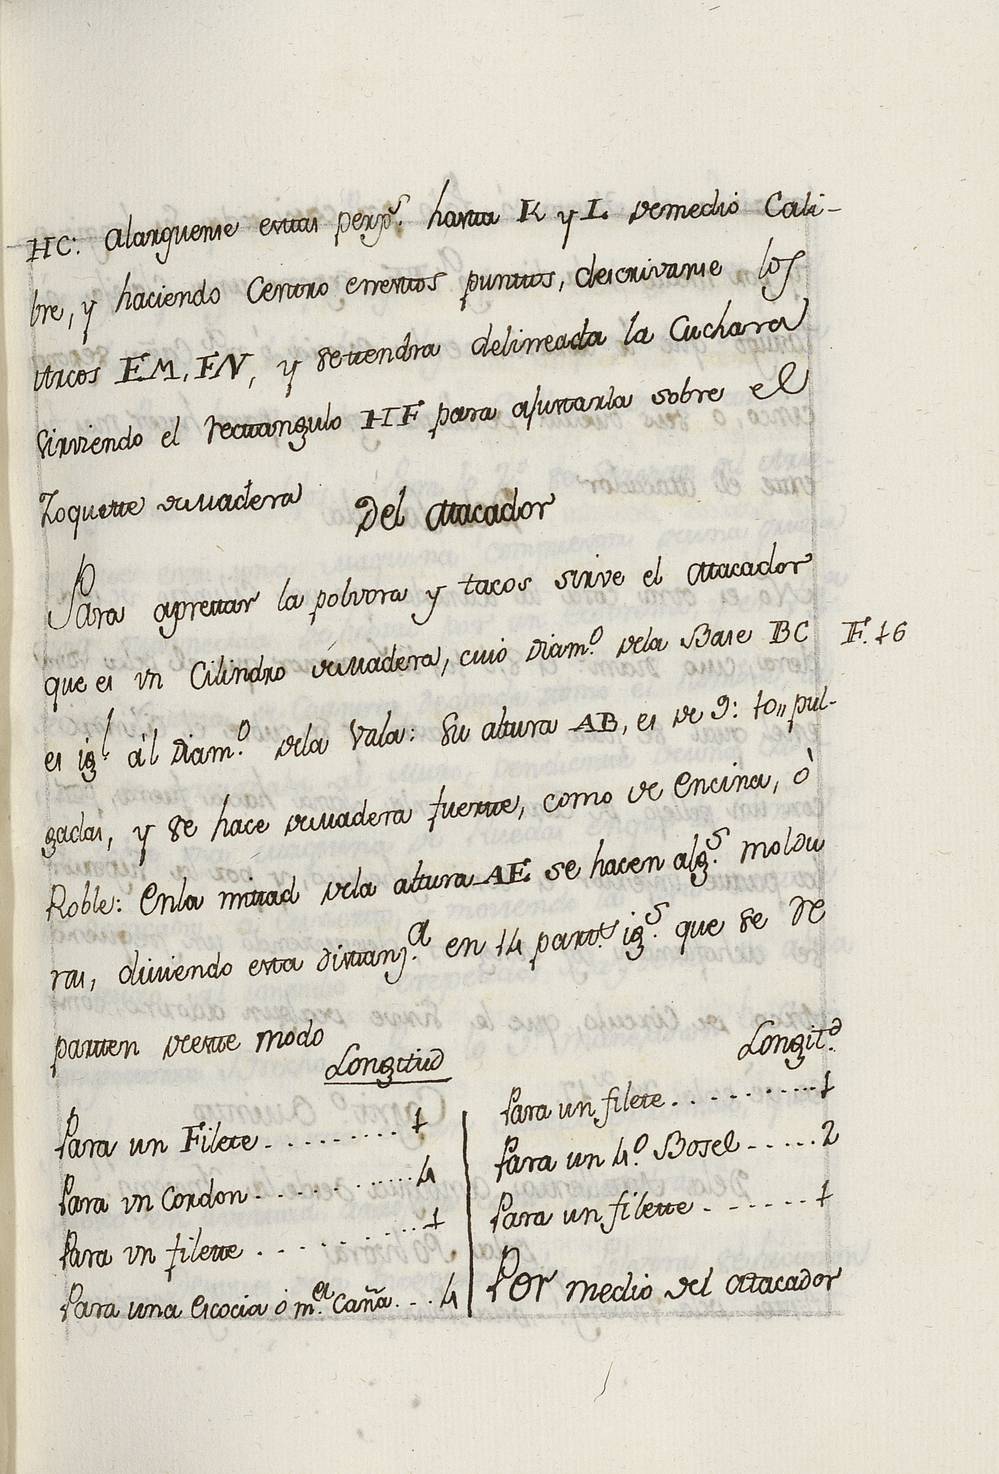 HC: Alarguense estas perp.s hasta K y L demedio Cali-
bre, y haciendo Centro enestos puntos, descrivanse los
Arcos EM, FN, y setendra delineada la Cuchara
Sirviendo el rectangulo HF para ajustarla sobre el
Zoquette demadera
Del attacador
Para aprettar la polvora y tacos sirve el attacador
que es vn Cilindro demadera, cuio Diam.o dela Base BC F. 16
es ig.l ál Diam.o dela Vala: Su altura AB, es de 9: 10,, pul-
gadas, y se hace demadera fuerte, como de Encina, ò
Roble: Enla mitad dela altura AE se hacen alg.s moldu
ras, diviendo esta distanz.a en 14 part.s ig.s que se re
parten deeste modo
Longitud
Para un Filete......... 1
Para vn Cordon............ 4
Para vn filette............ 1
Para una Escocia ó m.a Caña... 4
Longit.d
Para un filete.......... 1
Para un 4.o Bosel...... 2
Para un filette....... 1
Por medio del attacador